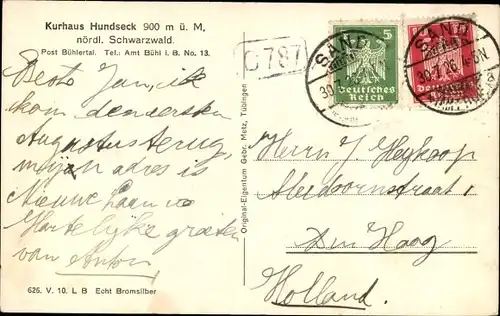 Kurhaus Hundseck 900 m ü. M.
nördl. Schwarzwald.
Post Bühlertal. Tel.: Amt Bühl i. B. No. 13.
Beste Jan, ik
kom den eersten
Augustus terug,
mijn adres is
Nieuwe Laan 10
Hartelijke groeten
van Anton
626. V. 10. L B Echt Bromsilber
Original-Eigentum Gebr. Metz, Tübingen
C 787
SAND
5
Deutsches
Reich
SAND
30.7.26.
Deutsches
Herrn J. Heykoop
Den Haag
Holland.